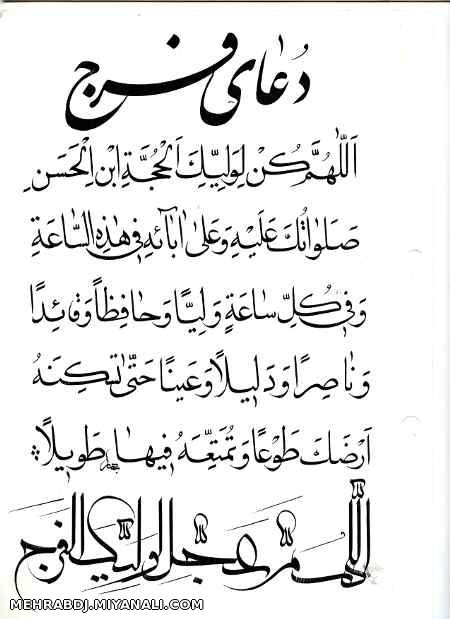 دُعای فرج
اَللّٰهُمَّ كُنْ لِوَلِيِّكَ الْحُجَّةِ ابْنِ الْحَسَنِ
صَلَواتُكَ عَلَيْهِ وَعَلىٰ اٰبآئِهِ فی هٰذِهِ السّٰاعَةِ
وَفی كُلِّ سٰاعَةٍ وَلِيًّا وَحٰافِظاً وَقٰائِدًا
وَنٰاصِرًا وَدَليلاً وَعَيْناً حَتّىٰ تُسْكِنَهُ
اَرْضَكَ طَوْعًا وَتُمَتِّعَهُ فيهٰا طَويلاً
اللّٰهم عجل لوليك الفرج
MEHRABDJ.MIYANALI.COM